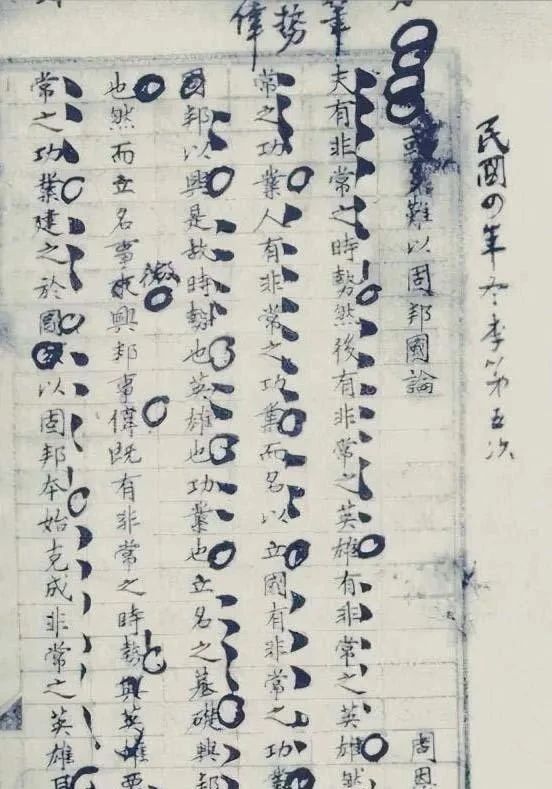 偉勢筆
民國四年冬季第五次
或多難以固邦國論
周恩
夫有非常之時勢然後有非常之英雄有非常之英雄然
常之功業人有非常之功業而名以立國有非常之功業
國邦以興是故時勢也英雄也功業也立名之基礎興邦
也然而立名事微興邦事偉既有非常之時勢與英雄要
常之功業建之於國以固邦本始克成非常之英雄